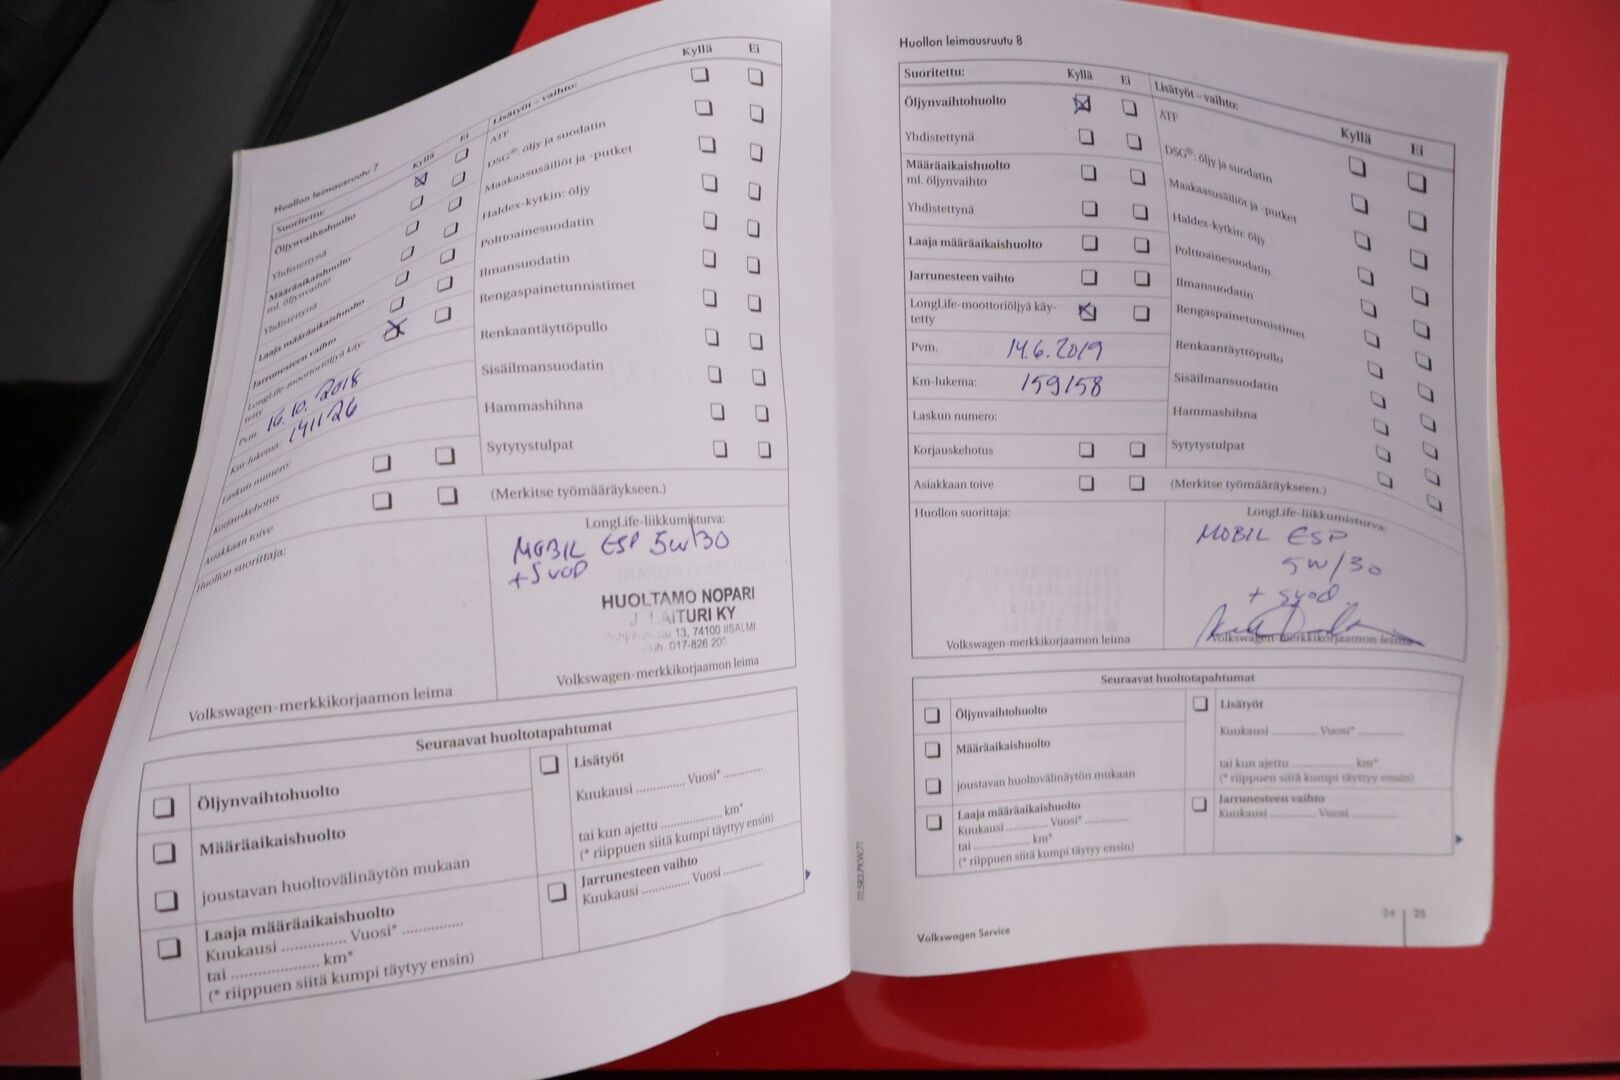 Huollon leimausruutu 7
Suoritettu: Kyllä Ei
Öljynvaihtohuolto
Yhdistettynä
Määräaikaishuolto
ml. öljynvaihto
Yhdistettynä
Laaja määräaikaishuolto
Jarrunesteen vaihto
LongLife-moottoriöljyä käy-
tetty
Pvm. 16.10.2018
Km-lukema: 141126
Laskun numero:
Korjauskehotus
Asiakkaan toive
Lisätyöt – vaihto: Kyllä Ei
ATF
DSG®: öljy ja suodatin
Maakaasusäiliöt ja -putket
Haldex-kytkin: öljy
Polttoainesuodatin
Ilmansuodatin
Rengaspainetunnistimet
Renkaantäyttöpullo
Sisäilmansuodatin
Hammashihna
Sytytystulpat
(Merkitse työmääräykseen.)
Huollon suorittaja:
Volkswagen-merkkikorjaamon leima
LongLife-liikkumisturva:
MOBIL ESP 5W/30
+ SUOD
HUOLTAMO NOPARI
J LAITURI KY
13, 74100 IISALMI
017-826 200
Volkswagen-merkkikorjaamon leima
Seuraavat huoltotapahtumat
Öljynvaihtohuolto
Määräaikaishuolto
joustavan huoltovälinäytön mukaan
Laaja määräaikaishuolto
Kuukausi ............... Vuosi* ...............
tai ..................... km*
(* riippuen siitä kumpi täytyy ensin)
Lisätyöt
Kuukausi ............. Vuosi* ............
tai kun ajettu .................... km*
(* riippuen siitä kumpi täytyy ensin)
Jarrunesteen vaihto
Kuukausi ............. Vuosi ............
Huollon leimausruutu 8
Suoritettu: Kyllä Ei
Öljynvaihtohuolto
Yhdistettynä
Määräaikaishuolto
ml. öljynvaihto
Yhdistettynä
Laaja määräaikaishuolto
Jarrunesteen vaihto
LongLife-moottoriöljyä käy-
tetty
Pvm. 14.6.2019
Km-lukema: 159158
Laskun numero:
Korjauskehotus
Asiakkaan toive
Lisätyöt – vaihto: Kyllä Ei
ATF
DSG®: öljy ja suodatin
Maakaasusäiliöt ja -putket
Haldex-kytkin: öljy
Polttoainesuodatin
Ilmansuodatin
Rengaspainetunnistimet
Renkaantäyttöpullo
Sisäilmansuodatin
Hammashihna
Sytytystulpat
(Merkitse työmääräykseen.)
Huollon suorittaja:
Volkswagen-merkkikorjaamon leima
LongLife-liikkumisturva:
MOBIL ESP
5W/30
+ suod.
Volkswagen-merkkikorjaamon leima
Seuraavat huoltotapahtumat
Öljynvaihtohuolto
Määräaikaishuolto
joustavan huoltovälinäytön mukaan
Laaja määräaikaishuolto
Kuukausi ............ Vuosi* ............
tai ................ km*
(* riippuen siitä kumpi täytyy ensin)
Lisätyöt
Kuukausi ............ Vuosi* ............
tai kun ajettu ................ km*
(* riippuen siitä kumpi täytyy ensin)
Jarrunesteen vaihto
Kuukausi ............ Vuosi ............
Volkswagen Service
24 | 25